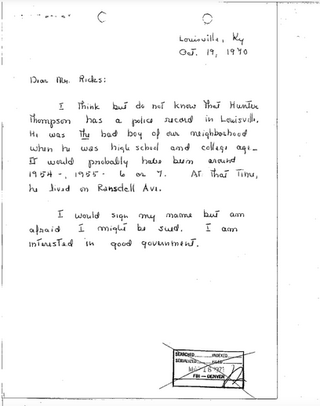 Louisville, Ky
Oct. 19, 1970
Dear Mr. Ricks:
I think but do not know that Hunter
Thompson has a police record in Louisville.
He was the bad boy of our neighborhood
when he was high school and college age.
It would probably have been around
1954-, 1955- 6 or 7. At that time,
he lived on Ransdell Ave.
I would sign my name but am
afraid I might be sued. I am
interested in good government.
SEARCHED INDEXED
SERIALIZED FILED
FBI — DENVER